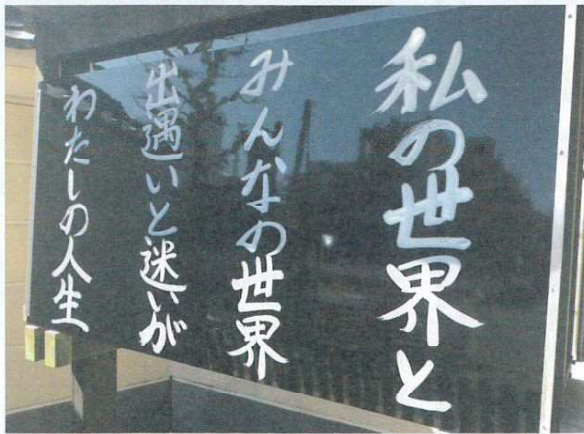 私の世界と
みんなの世界
出遇いと迷いが
わたしの人生